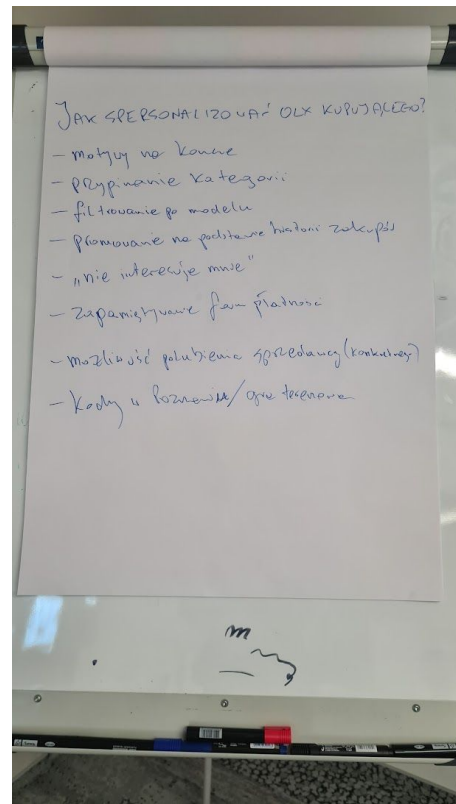 JAK SPERSONALIZOWAĆ OLX KUPUJĄCEGO?
- motywy na koncie
- przypinanie kategorii
- filtrowanie po modelu
- promowanie na podstawie historii zakupów
- „nie interesuje mnie"
- zapamiętywanie form płatności
- możliwość polubienia sprzedawcy (konkretnego)
- Kody w Poznaniu/gra terenowa
m